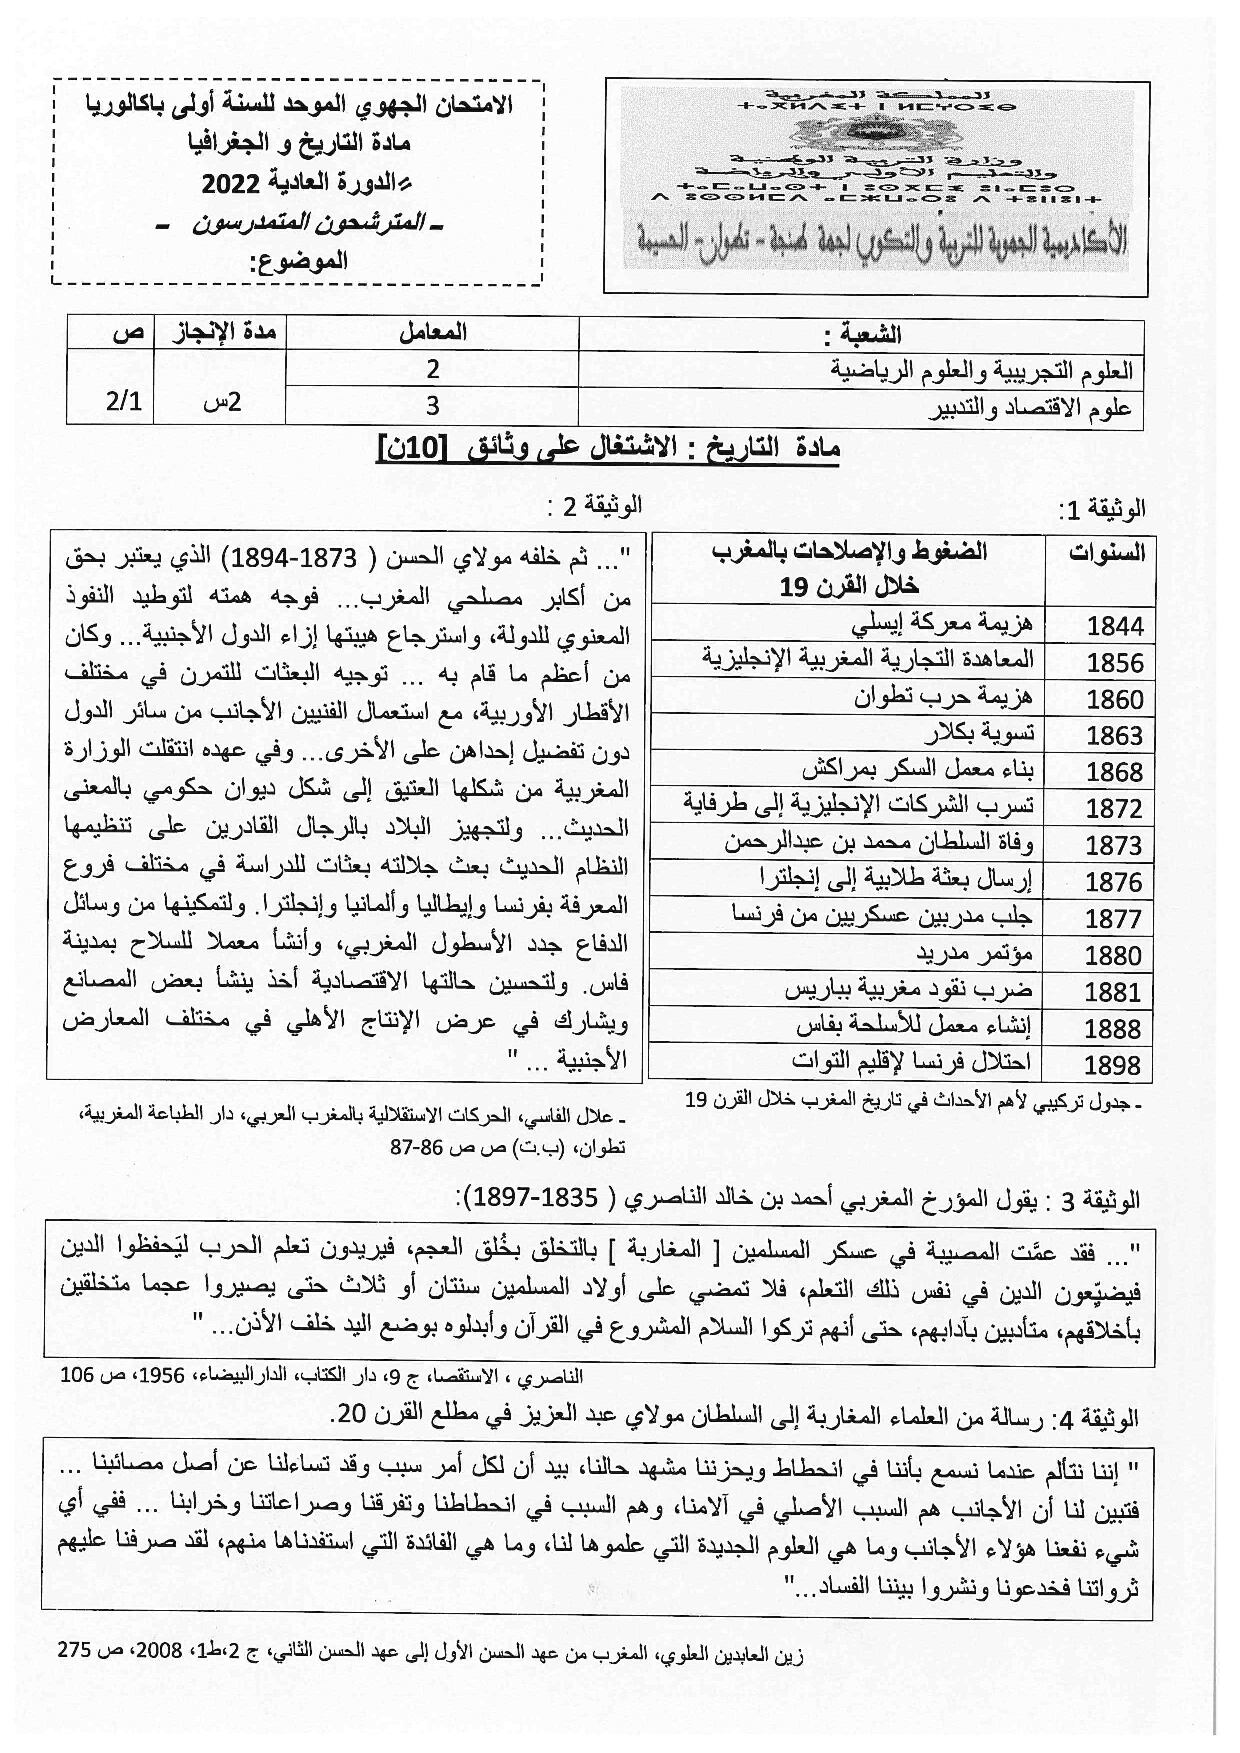 المملكة المغربية
ⵜⴰⴳⵍⴷⵉⵜ ⵏ ⵍⵎⵖⵔⵉⴱ
وزارة التربية الوطنية
والتعليم الأولي والرياضة
الأكاديمية الجهوية للتربية والتكوين لجهة طنجة - تطوان - الحسيمة
الامتحان الجهوي الموحد للسنة أولى باكالوريا
مادة التاريخ و الجغرافيا
الدورة العادية 2022
ـ المترشحون المتمدرسون ـ
الموضوع:
الشعبة : المعامل مدة الإنجاز ص
العلوم التجريبية والعلوم الرياضية 2 2س 2/1
علوم الاقتصاد والتدبير 3
مادة التاريخ : الاشتغال على وثائق [10ن]
الوثيقة 1:
السنوات الضغوط والإصلاحات بالمغرب
خلال القرن 19
1844 هزيمة معركة إيسلي
1856 المعاهدة التجارية المغربية الإنجليزية
1860 هزيمة حرب تطوان
1863 تسوية بكلار
1868 بناء معمل السكر بمراكش
1872 تسرب الشركات الإنجليزية إلى طرفاية
1873 وفاة السلطان محمد بن عبدالرحمن
1876 إرسال بعثة طلابية إلى إنجلترا
1877 جلب مدربين عسكريين من فرنسا
1880 مؤتمر مدريد
1881 ضرب نقود مغربية بباريس
1888 إنشاء معمل للأسلحة بفاس
1898 احتلال فرنسا لإقليم التوات
ـ جدول تركيبي لأهم الأحداث في تاريخ المغرب خلال القرن 19
الوثيقة 2 :
"... ثم خلفه مولاي الحسن ( 1873-1894) الذي يعتبر بحق
من أكابر مصلحي المغرب... فوجه همته لتوطيد النفوذ
المعنوي للدولة، واسترجاع هيبتها إزاء الدول الأجنبية... وكان
من أعظم ما قام به ... توجيه البعثات للتمرن في مختلف
الأقطار الأوربية، مع استعمال الفنيين الأجانب من سائر الدول
دون تفضيل إحداهن على الأخرى... وفي عهده انتقلت الوزارة
المغربية من شكلها العتيق إلى شكل ديوان حكومي بالمعنى
الحديث... ولتجهيز البلاد بالرجال القادرين على تنظيمها
النظام الحديث بعث جلالته بعثات للدراسة في مختلف فروع
المعرفة بفرنسا وإيطاليا وألمانيا وإنجلترا. ولتمكينها من وسائل
الدفاع جدد الأسطول المغربي، وأنشأ معملا للسلاح بمدينة
فاس. ولتحسين حالتها الاقتصادية أخذ ينشأ بعض المصانع
ويشارك في عرض الإنتاج الأهلي في مختلف المعارض
الأجنبية ... "
ـ علال الفاسي، الحركات الاستقلالية بالمغرب العربي، دار الطباعة المغربية،
تطوان، (ب.ت) ص ص 86-87
الوثيقة 3 : يقول المؤرخ المغربي أحمد بن خالد الناصري ( 1835-1897):
"... فقد عمَّت المصيبة في عسكر المسلمين [ المغاربة ] بالتخلق بخُلق العجم، فيريدون تعلم الحرب ليَحفظوا الدين
فيضيِّعون الدين في نفس ذلك التعلم، فلا تمضي على أولاد المسلمين سنتان أو ثلاث حتى يصيروا عجما متخلقين
بأخلاقهم، متأدبين بآدابهم، حتى أنهم تركوا السلام المشروع في القرآن وأبدلوه بوضع اليد خلف الأذن... "
الناصري ، الاستقصا، ج 9، دار الكتاب، الدارالبيضاء، 1956، ص 106
الوثيقة 4: رسالة من العلماء المغاربة إلى السلطان مولاي عبد العزيز في مطلع القرن 20.
" إننا نتألم عندما نسمع بأننا في انحطاط ويحزننا مشهد حالنا، بيد أن لكل أمر سبب وقد تساءلنا عن أصل مصائبنا ...
فتبين لنا أن الأجانب هم السبب الأصلي في آلامنا، وهم السبب في انحطاطنا وتفرقنا وصراعاتنا وخرابنا ... ففي أي
شيء نفعنا هؤلاء الأجانب وما هي العلوم الجديدة التي علموها لنا، وما هي الفائدة التي استفدناها منهم، لقد صرفنا عليهم
ثرواتنا فخدعونا ونشروا بيننا الفساد..."
زين العابدين العلوي، المغرب من عهد الحسن الأول إلى عهد الحسن الثاني، ج 2،ط1، 2008، ص 275